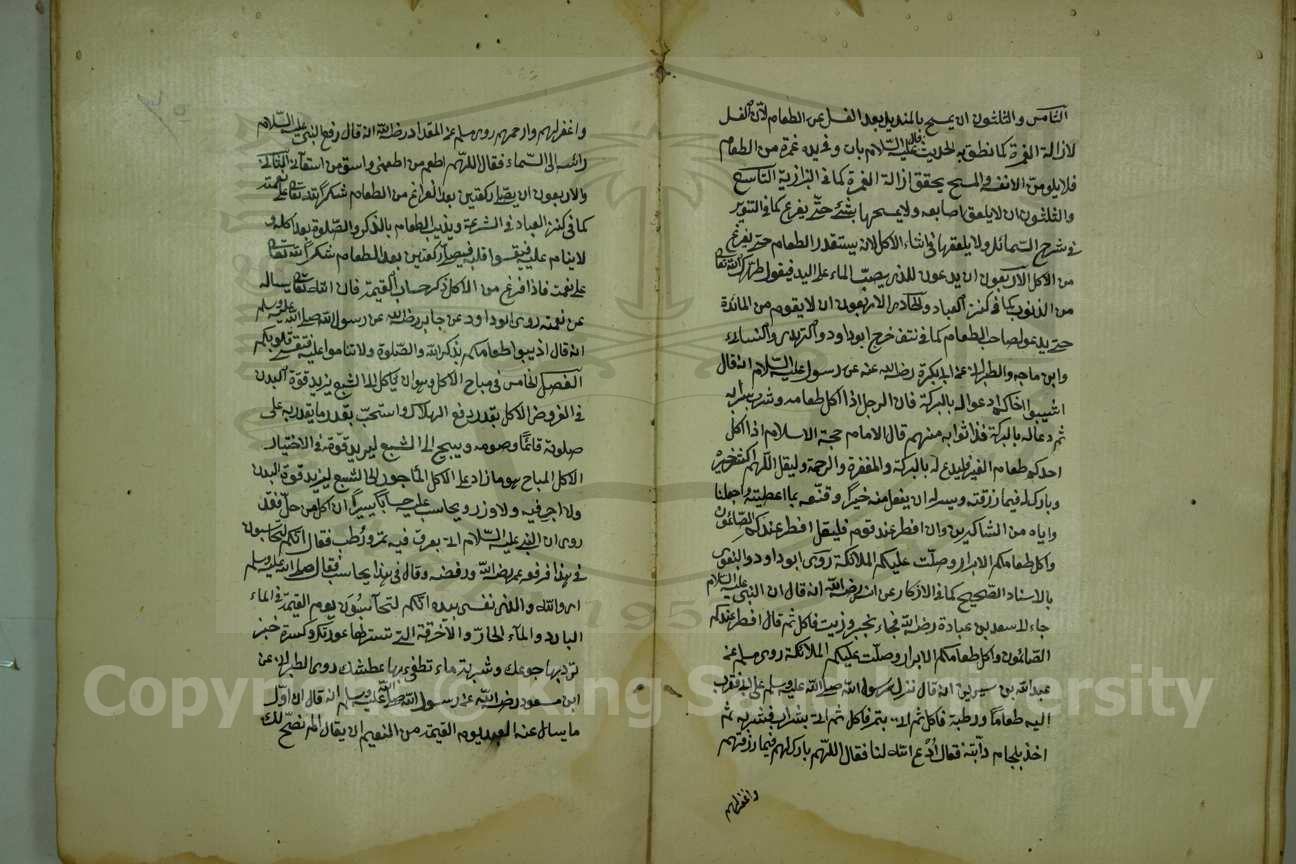 الثامن والثلثون ان يمسح بالمنديل بعد الغسل من الطعام لان الغسل
لازالة الغمرة كما نطق به الحديث قال عليه السلام بات وفي يده غمرة من الطعام
فلا يلومن الا نفسه والمسح يحقق ازالة الغمرة كما في البزازية التاسع
والثلثون ان لا يلعق اصابعه ولا يمسحها بشئ حتى يفرغ كما في التنوير
في شرح الشمائل ولا يلعقها في اثناء الاكل لانه يستقذر الطعام حتى يفرغ
من الاكل الاربعون ان يدعون للذي يصب الماء على اليد فيقول طهرك الله تعالى
من الذنوب كما في كنز العباد والحادي الاربعون ان لا يقوم من المائدة
حتى يدعو لصاحب الطعام كما في نتف خرج ابو داود والترمذي والنسائي
وابن ماجه والطبراني عن ابي بكرة رضي الله عنه عن رسول عليه السلام انه قال
اثيبوا اخاكم دعوا له بالبركة فان الرجل اذا اكل طعامه وشرب شرابه
ثم دعا له بالبركة فذا ثوابه منهم قال الامام حجة الاسلام اذا اكل
احدكم طعام الغير فليدع له بالبركة والمغفرة والرحمة وليقل اللهم اكثر خيره
وبارك له فيما رزقته ويسر له ان ينفعل منه خيرا وقنعه بما اعطيته واجعلنا
واياه من الشاكرين وان افطر عند قوم فليقل افطر عندكم الصائمون
واكل طعامكم الابرار وصلت عليكم الملائكة روى ابو داود والنووي
بالاسناد الصحيح كما في الاذكار عن انس رضي الله انه قال ان النبي عليه السلام
جاء لاسعد بن عبادة رضي الله فجاء بخبز وزيت فاكل ثم قال افطر عندكم
الصائمون واكل طعامكم الابرار وصلت عليكم الملائكة روى مسلم عن
عبد الله بن سيرين انه قال نزل رسول الله صلى الله عليه وسلم على ابي فقرب
اليه طعاما ورطبة فاكل ثم اتى بتمر فاكل ثم اتى بشراب فشربه ثم
اخذ بلجام دابته فقال ادع الله لنا فقال اللهم بارك لهم فيما رزقتهم
واغفر لهم
واغفر لهم وارحمهم روى مسلم عن المقداد رضي الله انه قال رفع النبي عليه السلام
رائسه الى السماء فقال اللهم اطعم من اطعمني واسق من اسقاني الثاني
والاربعون ان يصلي ركعتين بعد الفراغ من الطعام شكرا لله تعالى على نعمته
كما في كنز العباد في الشرعة ويذيب الطعام بالذكر والصلوة بعد اكله و
لا ينام عليه فيقسوا قلبه فيصلي ركعتين بعد الطعام شكرا لله تعالى
على نعمته فاذا فرغ من الاكل ذكر حساب القيمة فان الله تعالى يساله
عن نعمته روى ابو داود عن جابر رضي الله عن رسول الله صلى الله عليه وسلم
انه قال اذيبوا طعامكم بذكر الله والصلوة ولا تناموا عليه فتقسى قلوبكم
الفصل الخامس في مباح الاكل وهو ان ياكل الى الشبع يزيد قوة البدن
في الفروض الاكل بقدر دفع الهلاك واستحب بقدر ما يقدر به على
صلوته قائما وصومه ويبيح الى الشبع ليزيد قوته في الاختيار
الاكل المباح هو ما زاد على الاكل المأجور الى الشبع ليزيد قوة البدن
ولا اجر فيه ولا وزر ويحاسب عليه حسابا يسيرا ان اكل من حل فقد
روى ان النبي عليه السلام اتى بعرق فيه تمر ورطب فقال انكم لتحاسبون
في هذا فرفع عمر رضي الله ورفضه وقال في هذا يحاسب فقال صلى الله عليه وسلم
اي والله والذي نفسي بيده انكم لتحاسبون يوم القيمة في الماء
البارد والماء الحار والاخرقة التي تستر بها عورتك وكسرة خبز
ترد بها جوعك وشربة ماء تطفئ بها عطشك روى الطبراني عن
ابن مسعود رضي الله عنه رسول الله صلى الله عليه وسلم انه قال ان اول
ما يسائل عنه العبد يوم القيمة من النعيم ان يقال الم نصح لك
Copyright © King Saud University
1957